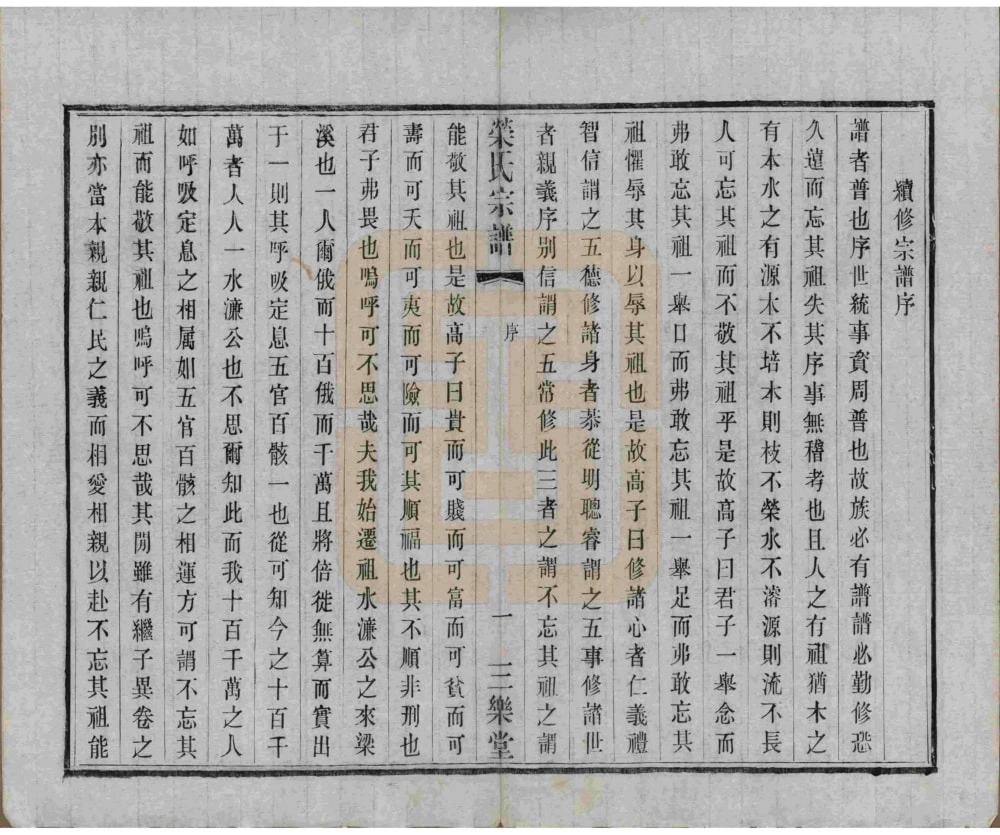 續修宗譜序
譜者普也序世統事資周普也故族必有譜譜必勤修恐
久遠而忘其祖失其序事無稽考也且人之有祖猶木之
有本水之有源木不培本則枝不榮水不濬源則流不長
人可忘其祖而不敬其祖乎是故高子曰君子一舉念而
弗敢忘其祖一舉口而弗敢忘其祖一舉足而弗敢忘其
祖懼辱其身以辱其祖也是故高子曰修諸心者仁義禮
智信謂之五德修諸身者恭從明聰睿謂之五事修諸世
者親義序別信謂之五常修此三者之謂不忘其祖之謂
榮氏宗譜 序 一 三樂堂
能敬其祖也是故高子曰貴而可賤而可富而可貧而可
壽而可夭而可夷而可險而可其順福也其不順非刑也
君子弗畏也嗚呼可不思哉夫我始遷祖水濂公之來梁
溪也一人爾俄而十百俄而千萬且將倍徙無算而實出
于一則其呼吸定息五官百骸一也從可知今之十百千
萬者人人一水濂公也不思爾知此而我十百千萬之人
如呼吸定息之相屬如五官百骸之相運方可謂不忘其
祖而能敬其祖也嗚呼可不思哉其閒雖有繼子異卷之
別亦當本親親仁民之義而相愛相親以赴不忘其祖能